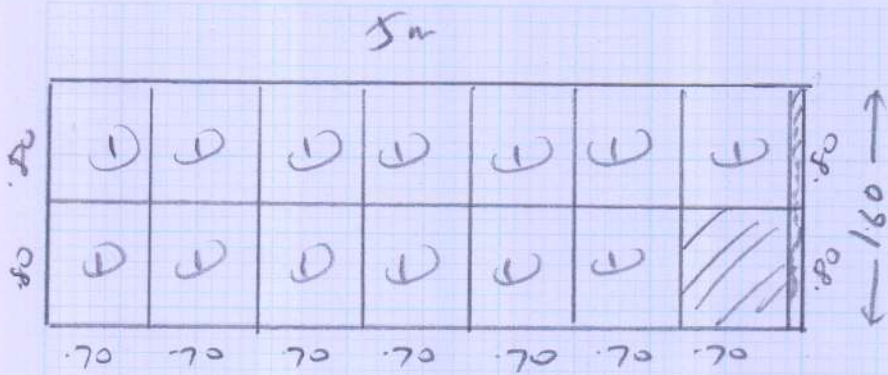 5m
.80 1 1 1 1 1 1 1 .80
.80 1 1 1 1 1 1 .80
1.60
.70 .70 .70 .70 .70 .70 .70